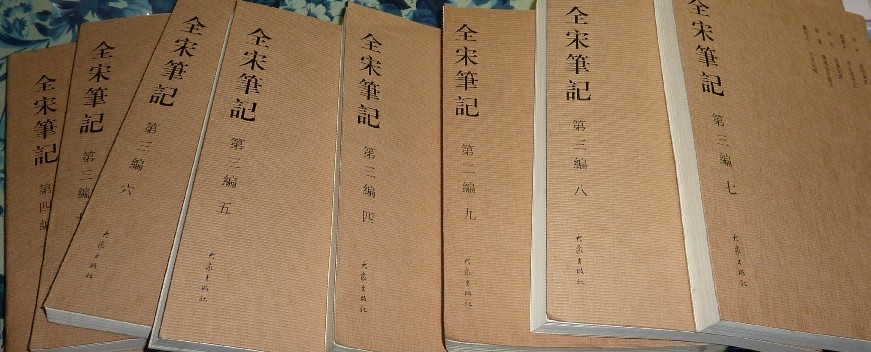 全宋筆記
第四編
全宋筆記
第三編
大象出版社
全宋筆記
第三編 六
大象出版社
全宋筆記
第三編 五
大象出版社
全宋筆記
第三編 四
大象出版社
全宋筆記
第二編 九
大象出版社
全宋筆記
第三編 八
大象出版社
全宋筆記
第三編 七
大象出版社